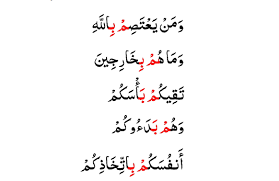 وَمَنْ يَعْتَصِمْ بِاللَّهِ
وَمَا هُمْ بِخَارِجِينَ
تَقِيكُمْ بَأْسَكُمْ
وَهُمْ بَدَءُوكُمْ
أَنفُسَكُمْ بِاتِّخَاذِكُمْ